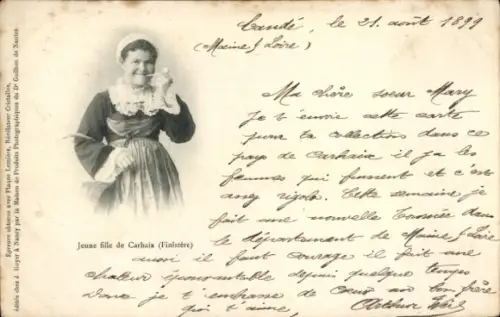 Candé, le 21 août 1899
(Maine & Loire)
Ma chère soeur Mary
Je t'envoie cette carte
pour ta collection dans ce
pays de Carhaix il y a les
femmes qui fument et c'est
assez rigolo. Cette semaine je
fait une nouvelle Tournée dans
le département de Maine & Loire
aussi il faut courage il fait une
chaleur épouvantable depuis quelque temps
Donc je t'embrasse de cœur ton frère
qui t'aime, Arthur
Jeune fille de Carhaix (Finistère)
Épreuve obtenue avec Plaque Lumière, Révélateur Cristallos,
éditée chez J. Royer à Nancy par la Maison de Produits Photographiques du Dr Guilhou de Nantes